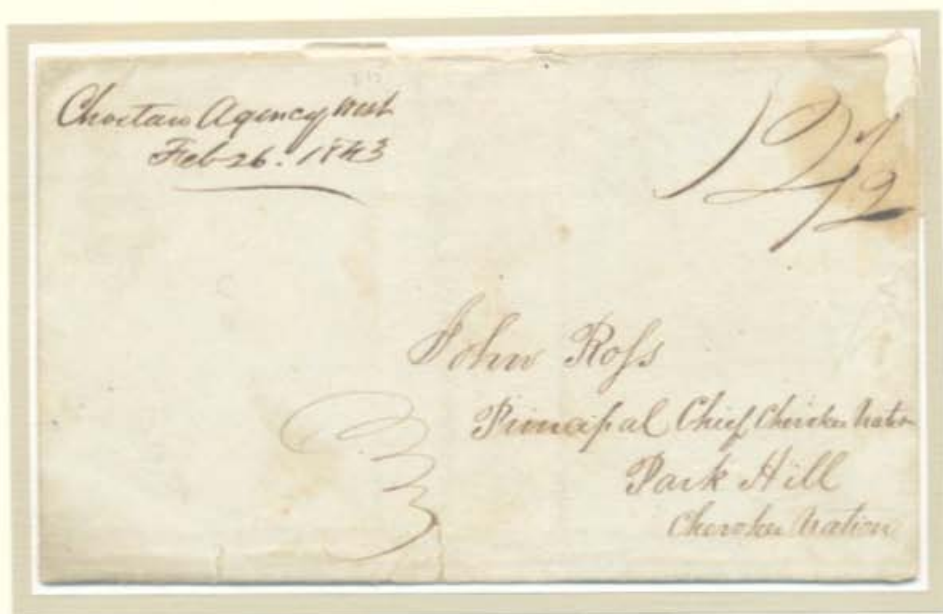 Choctaw Agency West
Feb 26. 1843
12 1/2
John Ross
Principal Chief Cherokee Nation
Park Hill
Cherokee Nation